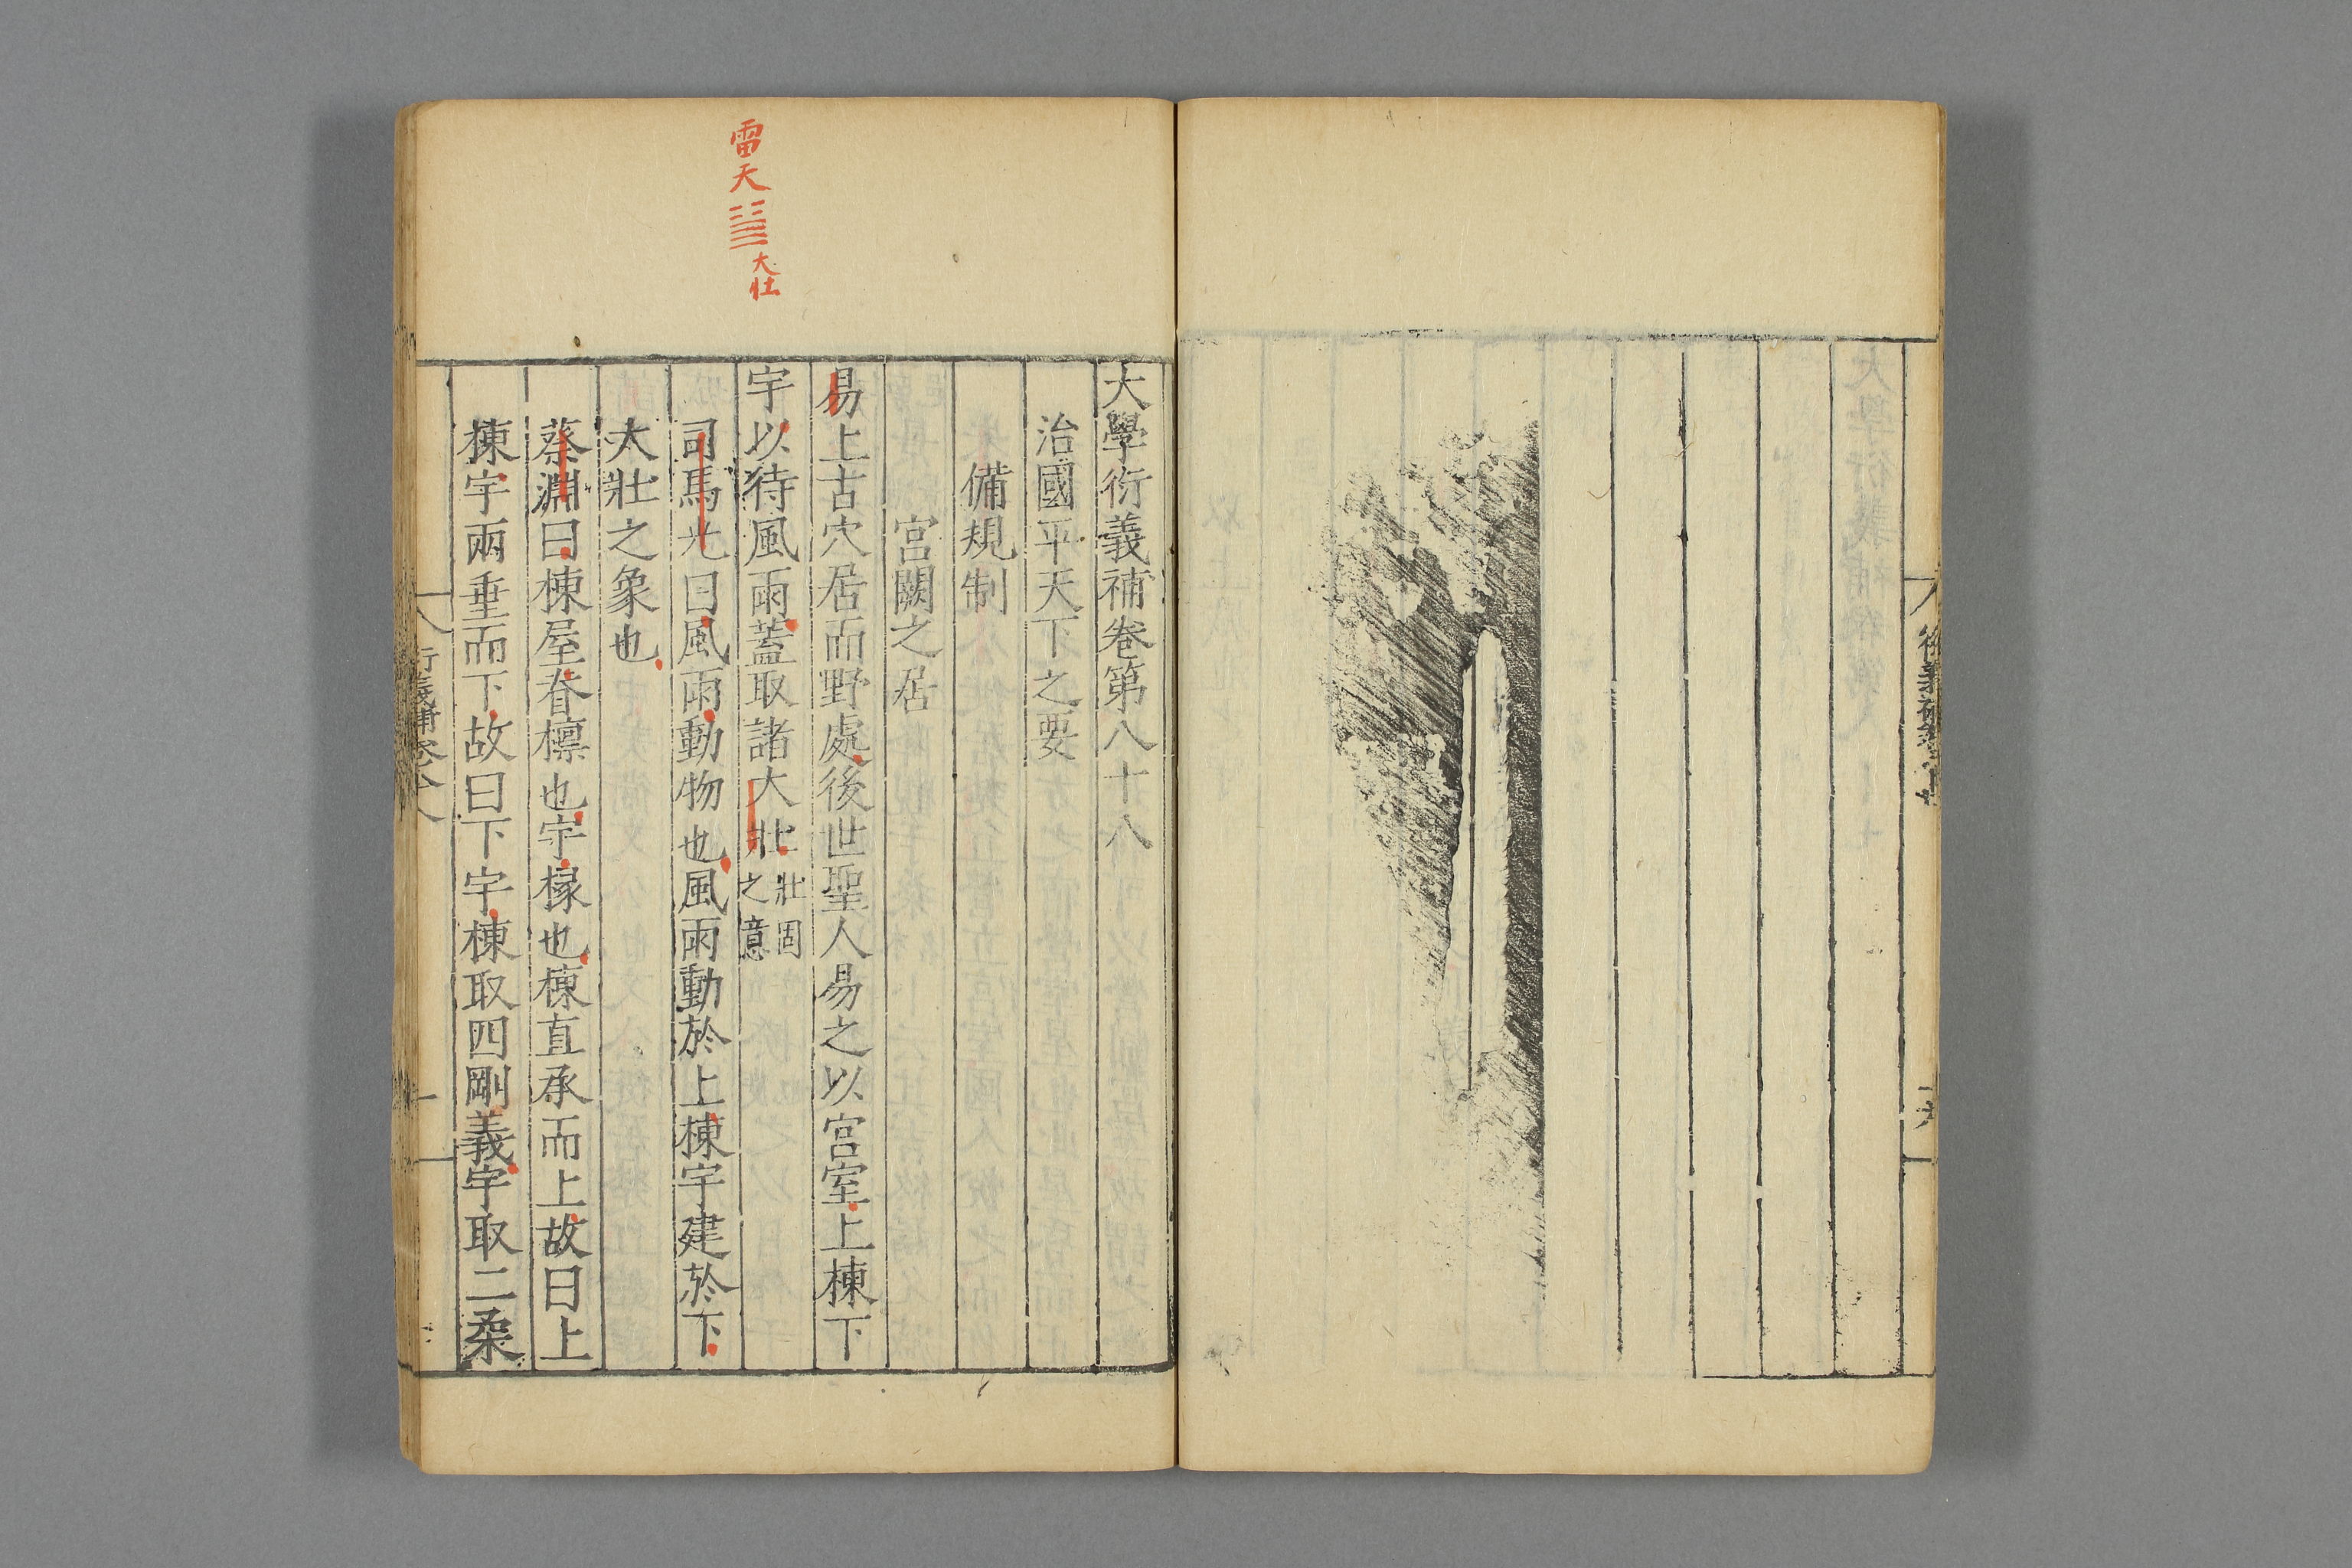 大學衍義補卷第八十八
治國平天下之要
備規制
宮闕之居
易上古穴居而野處後世聖人易之以宮室上棟下
宇以待風雨蓋取諸大壯壯固之意
司馬光曰風雨動物也風雨動於上棟宇建於下
大壯之象也
蔡淵曰棟屋脊檁也宇椽也棟直承而上故曰上
棟宇兩垂而下故曰下宇棟取四剛義宇取二柔
雷天䷡大壯